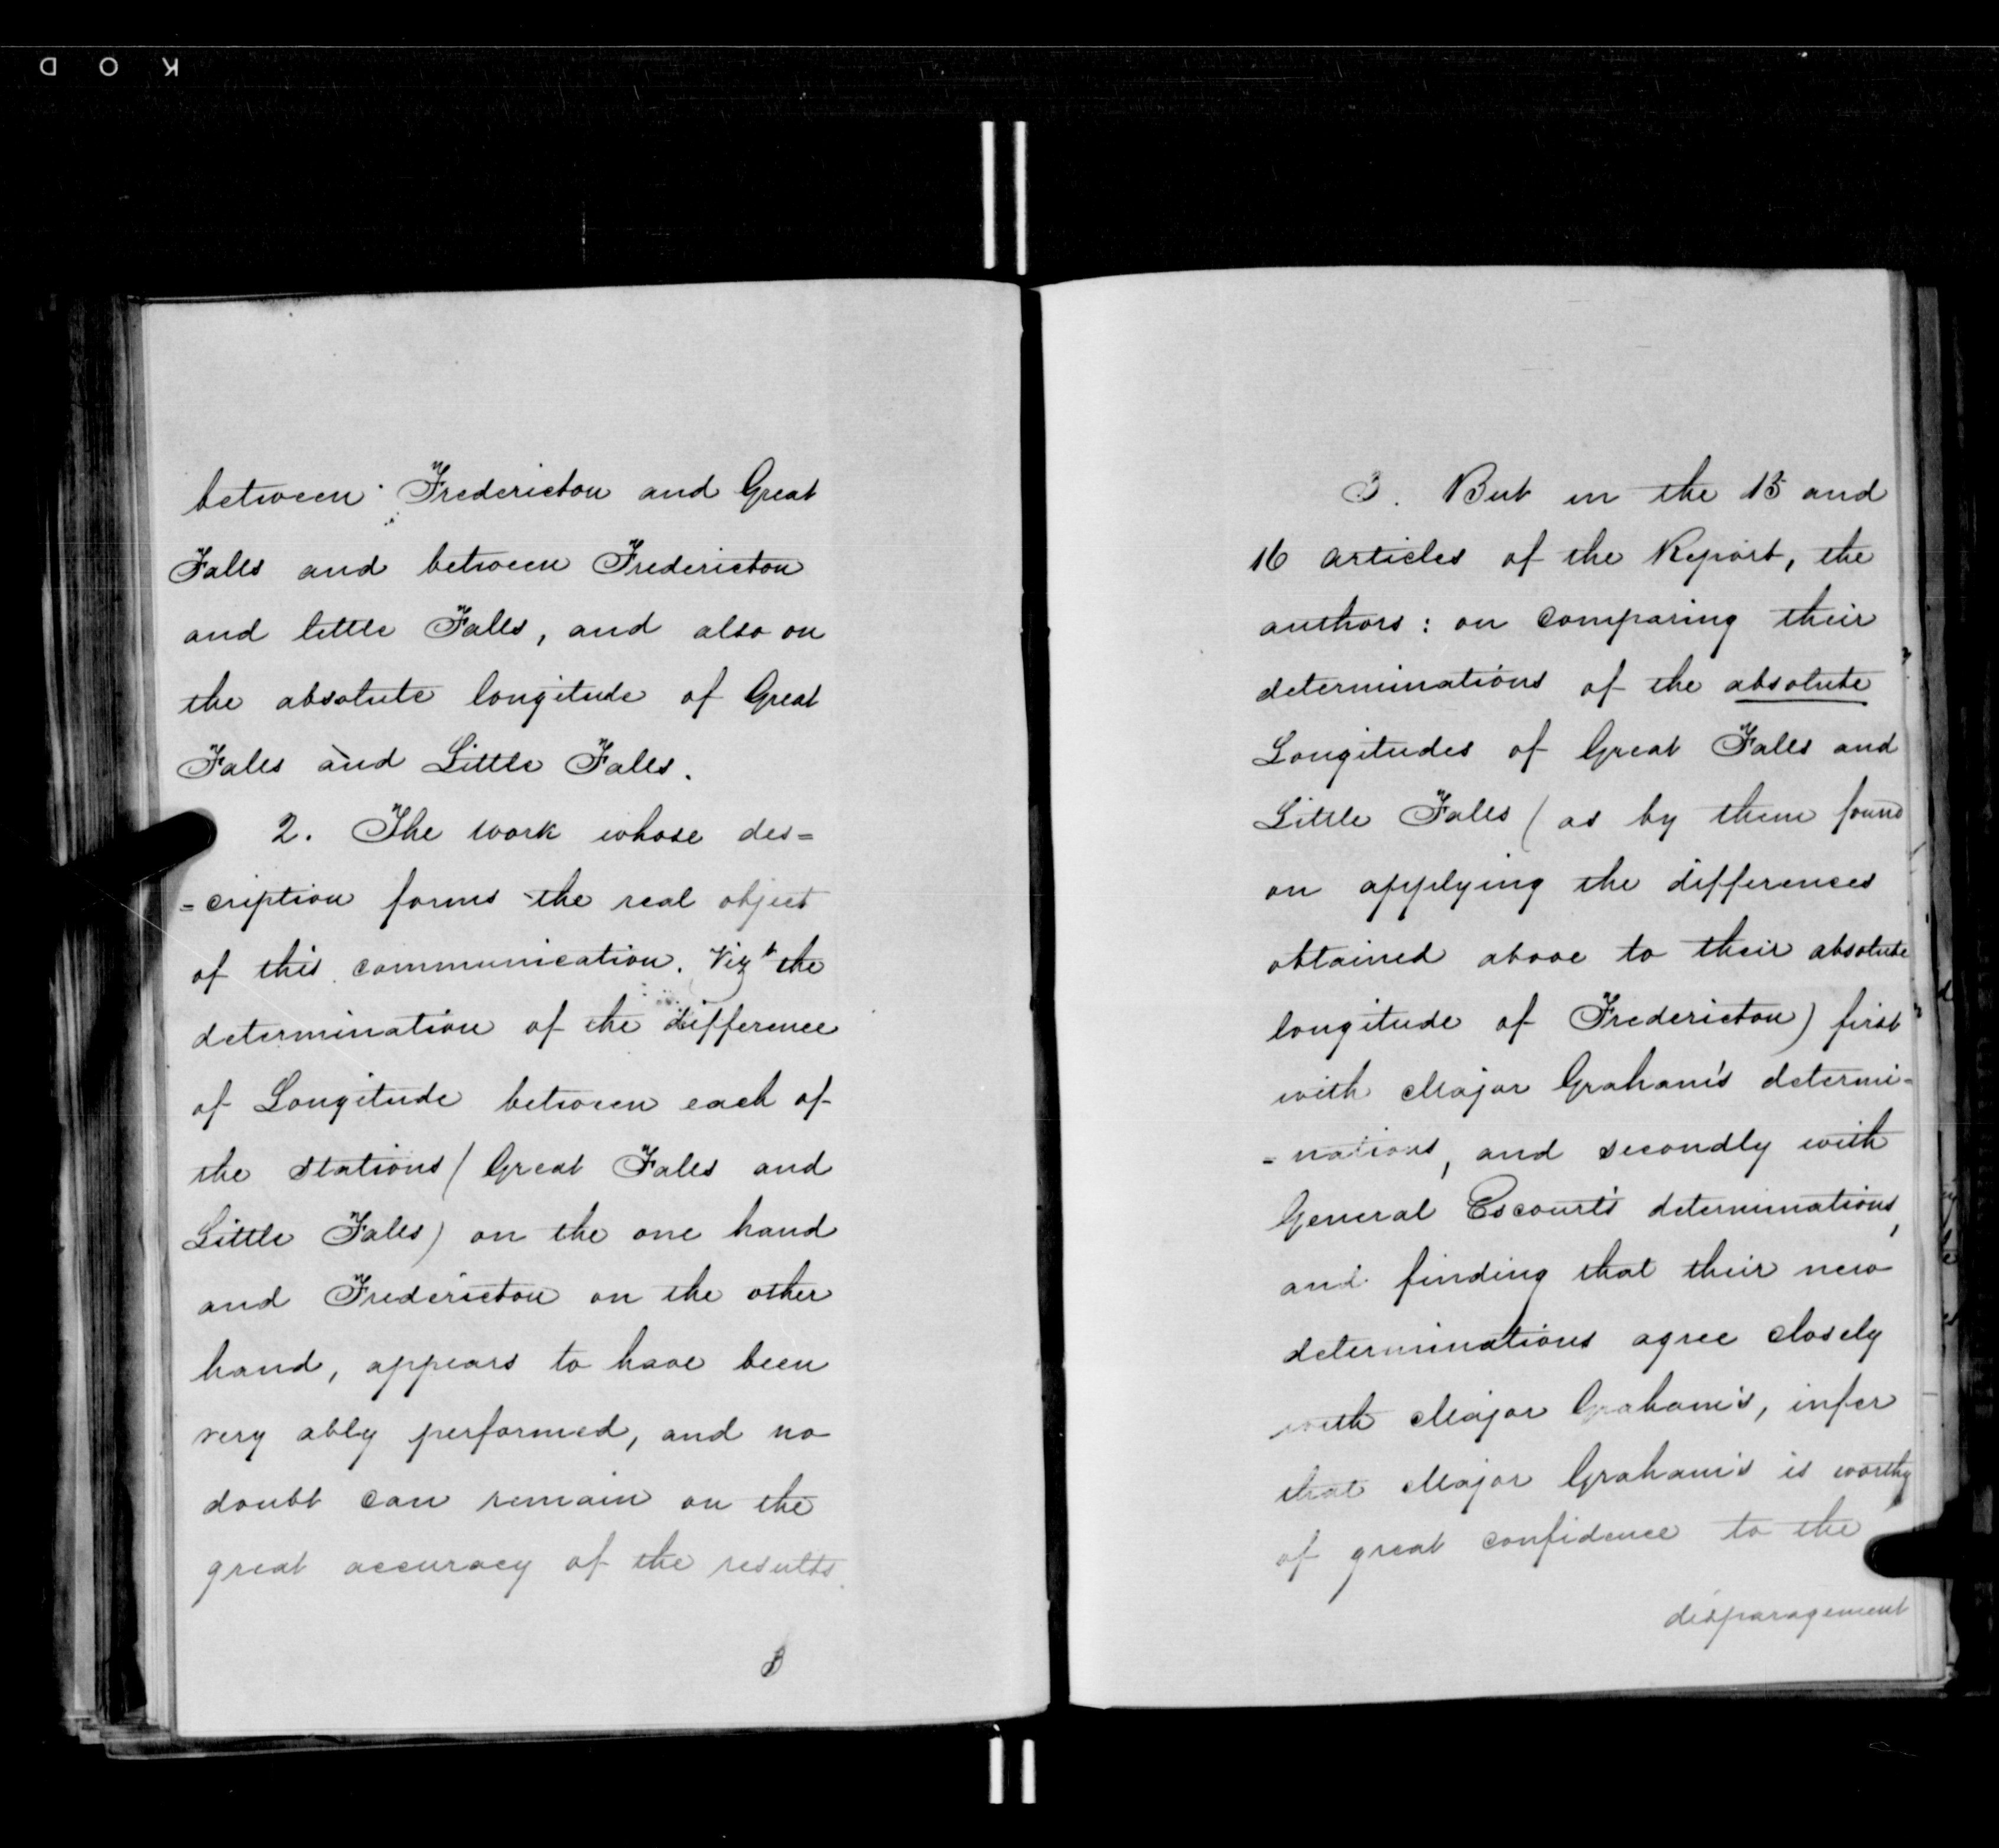 K O D
between Fredericton and Great
Falls and between Fredericton
and little Falls, and also on
the absolute longitude of Great
Falls and Little Falls.
2. The work whose des=
=cription forms the real object
of this communication. Vizt the
determination of the difference
of Longitude between each of
the stations (Great Falls and
Little Falls) on the one hand
and Fredericton on the other
hand, appears to have been
very ably performed, and no
doubt can remain on the
great accuracy of the results.
3
3. But in the 15 and
16 articles of the Report, the
authors: on comparing their
determinations of the absolute
Longitudes of Great Falls and
Little Falls (as by them found
on applying the differences
obtained above to their absolute
longitude of Fredericton) first
with Major Graham's determi=
=nations, and secondly with
General Escourt's determinations,
and finding that their new
determinations agree closely
with Major Graham's, infer
that Major Graham's is worthy
of great confidence to the
disparagement